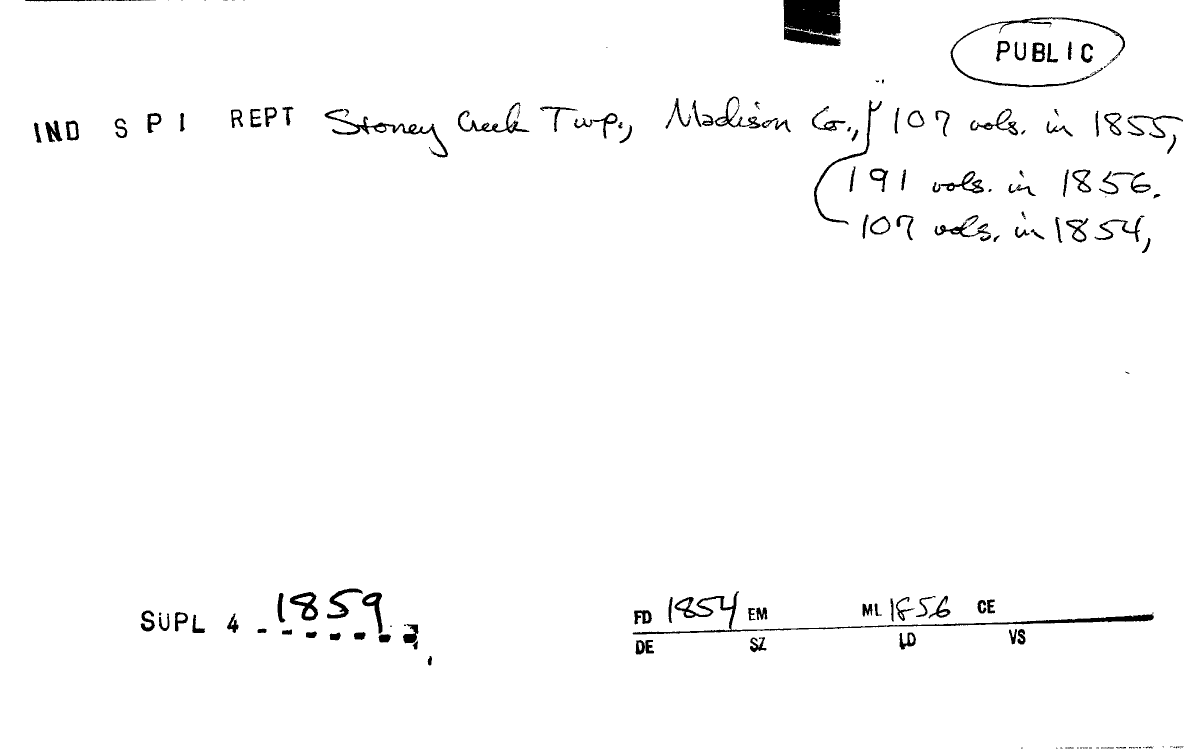 PUBLIC
IND S P I REPT Stoney Creek Twp., Madison Co., 107 vols. in 1855,
191 vols. in 1856.
107 vols. in 1854,
SUPL 4 1859
FD 1854 EM ML 1856 CE
DE SZ LD VS